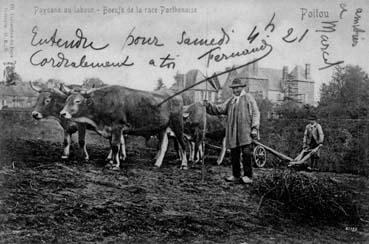 Paysans au labour - Boeufs de la race Parthenaise
Poitou
Entendu pour samedi 4h 21
Cordialement a toi Fernand
Merci